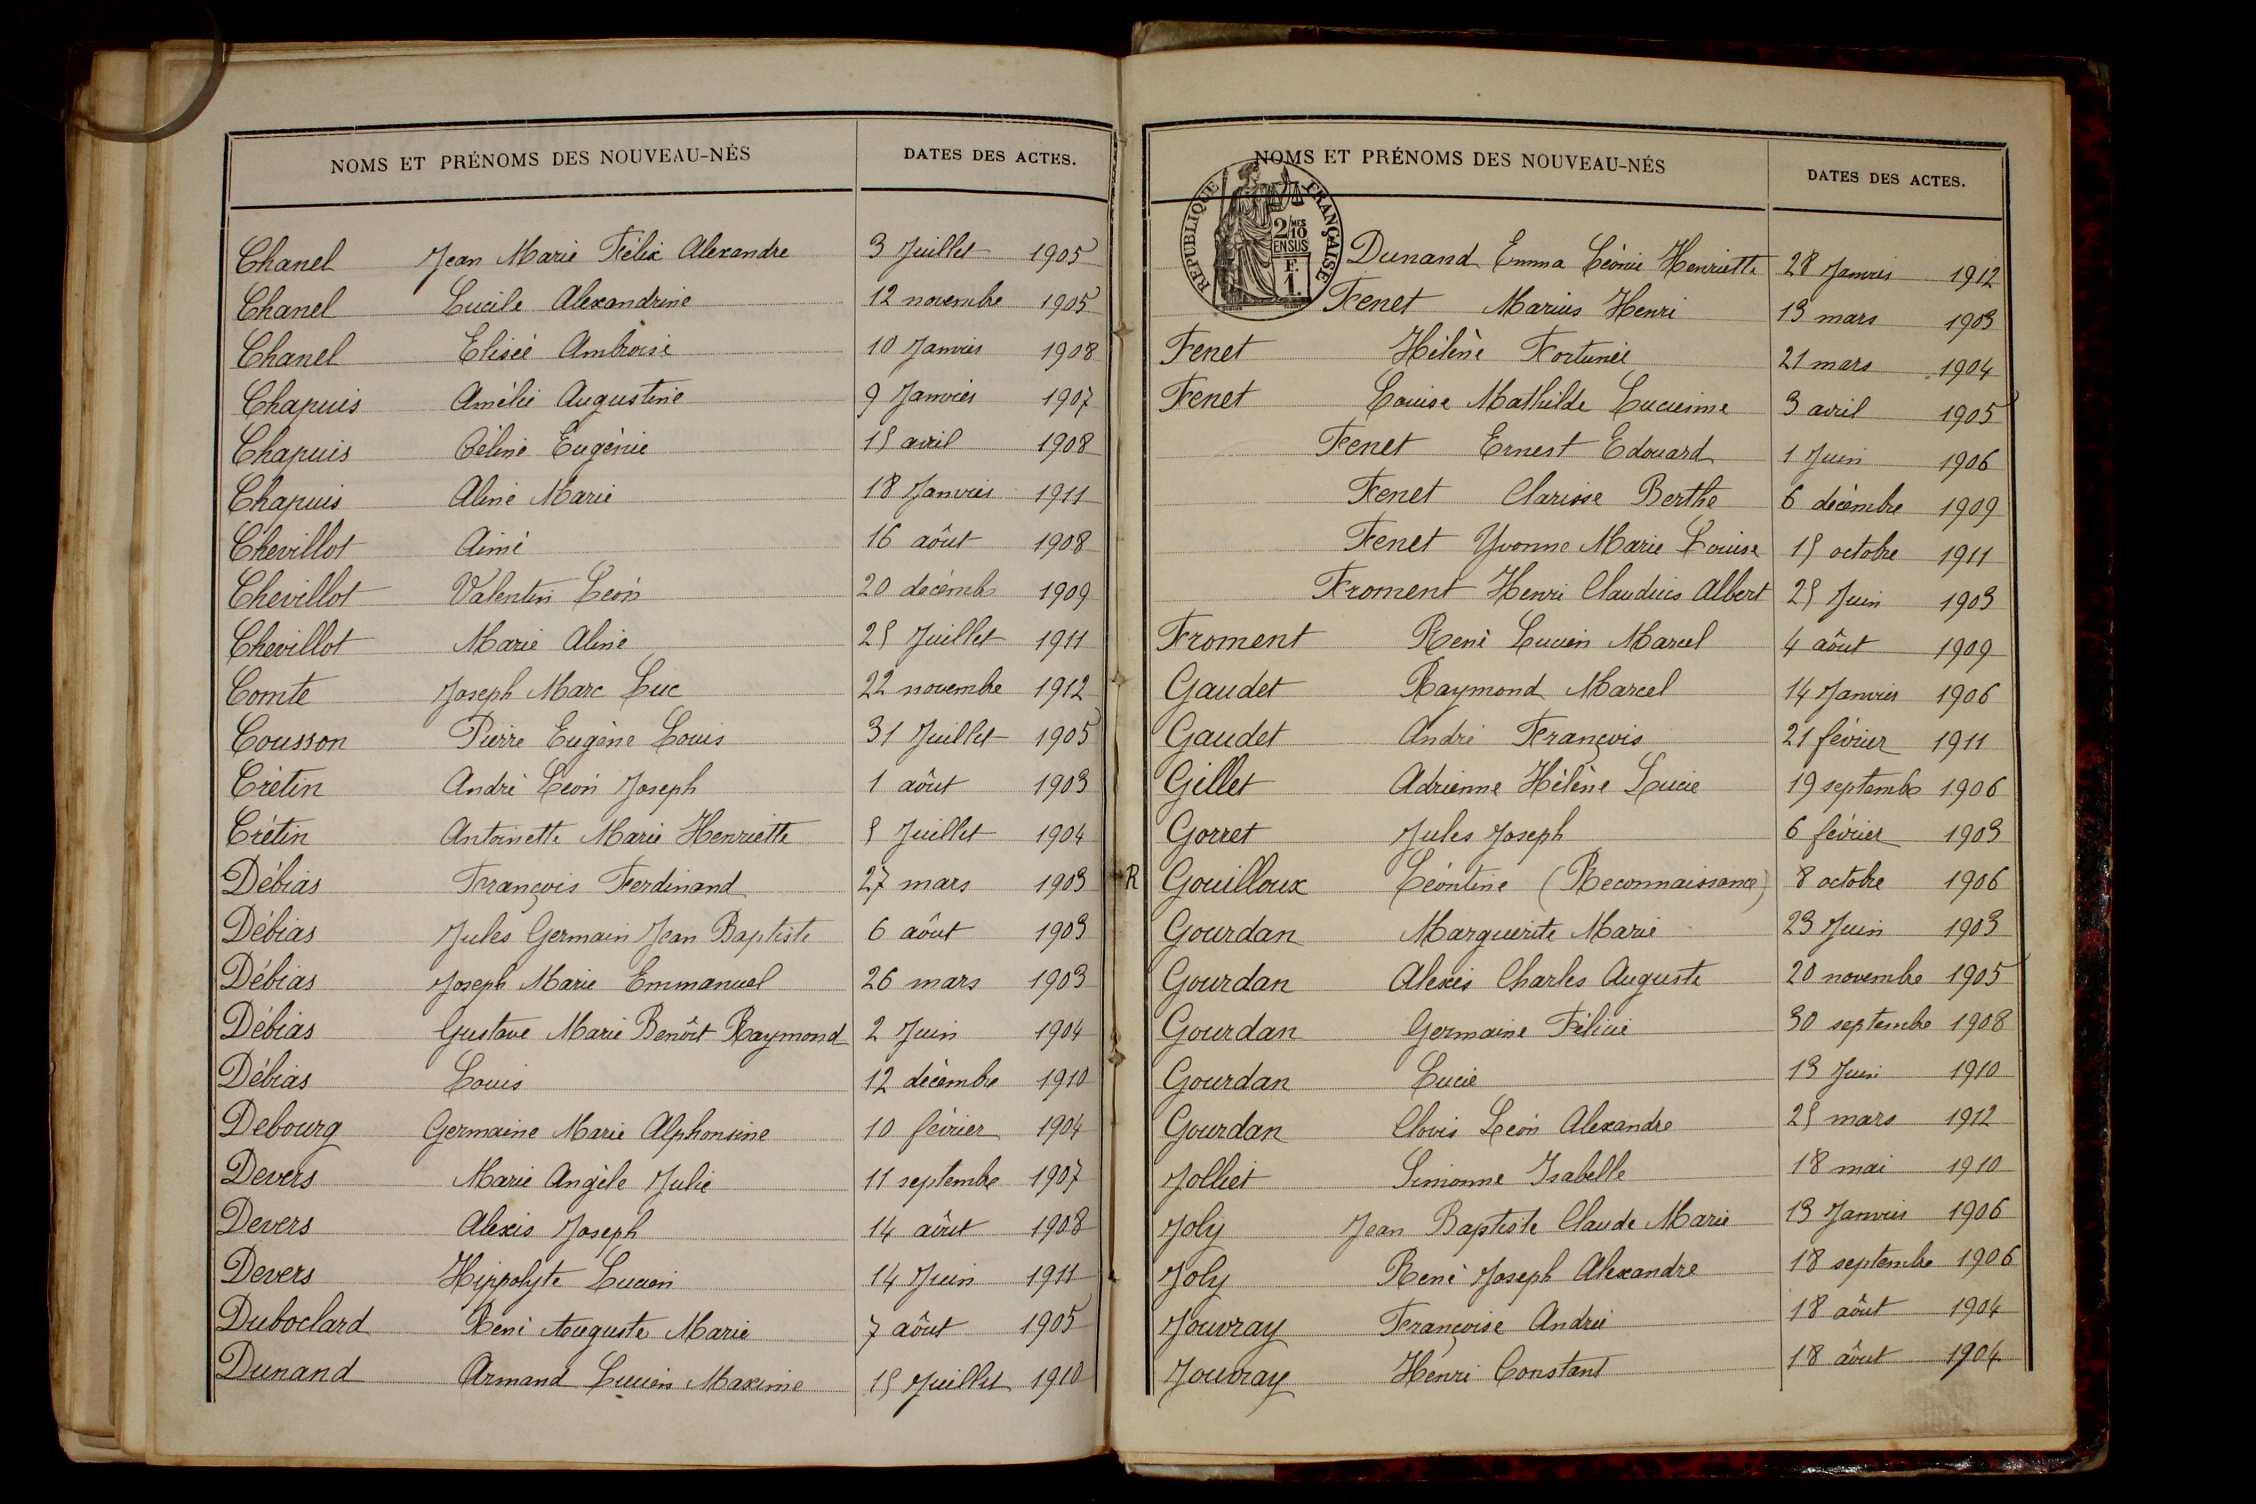 NOMS ET PRÉNOMS DES NOUVEAU-NÉS DATES DES ACTES.
Chanel Jean Marie Félix Alexandre 3 Juillet 1905
Chanel Lucile Alexandrine 12 novembre 1905
Chanel Elisée Ambroise 10 Janvier 1908
Chapuis Amélie Augustine 9 Janvier 1907
Chapuis Céline Eugénie 15 avril 1908
Chapuis Aline Marie 18 Janvier 1911
Chevillot Aimé 16 aôut 1908
Chevillot Valentin Léon 20 décembre 1909
Chevillot Marie Aline 25 Juillet 1911
Comte Joseph Marc Luc 22 novembre 1912
Cousson Pierre Eugène Louis 31 Juillet 1905
Crétin André Léon Joseph 1 aôut 1903
Crétin Antoinette Marie Henriette 5 Juillet 1904
Débias François Ferdinand 27 mars 1903
Débias Jules Germain Jean Baptiste 6 aôut 1903
Débias Joseph Marie Emmanuel 26 mars 1903
Débias Gustave Marie Benôit Raymond 2 Juin 1904
Débias Louis 12 décembre 1910
Debourg Germaine Marie Alphonsine 10 février 1904
Devers Marie Angèle Julie 11 septembre 1907
Devers Alexis Joseph 14 aôut 1908
Devers Hippolyte Lucien 14 Juin 1911
Duboclard René Auguste Marie 7 aôut 1905
Dunand Armand Lucien Maxime 15 Juillet 1910
NOMS ET PRÉNOMS DES NOUVEAU-NÉS DATES DES ACTES.
REPUBLIQUE FRANÇAISE
2/10 MES
EN SUS
F.
1.
Dunand Emma Léonie Henriette 28 Janvier 1912
Fenet Marius Henri 13 mars 1903
Fenet Hélène Fortunée 21 mars 1904
Fenet Louise Mathilde Lucienne 3 avril 1905
Fenet Ernest Edouard 1 Juin 1906
Fenet Clarisse Berthe 6 décembre 1909
Fenet Yvonne Marie Louise 15 octobre 1911
Froment Henri Claudius Albert 25 Juin 1903
Froment René Lucien Marcel 4 aôut 1909
Gaudet Raymond Marcel 14 Janvier 1906
Gaudet André François 21 février 1911
Gillet Adrienne Hélène Lucie 19 septembre 1906
Gorret Jules Joseph 6 février 1903
R Gouilloux Léontine (Reconnaissance) 8 octobre 1906
Gourdan Marguerite Marie 23 Juin 1903
Gourdan Alexis Charles Auguste 20 novembre 1905
Gourdan Germaine Félicie 30 septembre 1908
Gourdan Lucie 13 Juin 1910
Gourdan Clovis Léon Alexandre 25 mars 1912
Jolliet Simonne Isabelle 18 mai 1910
Joly Jean Baptiste Claude Marie 13 Janvier 1906
Joly René Joseph Alexandre 18 septembre 1906
Jouvray Françoise Andrée 18 aôut 1904
Jouvray Henri Constant 18 aôut 1904